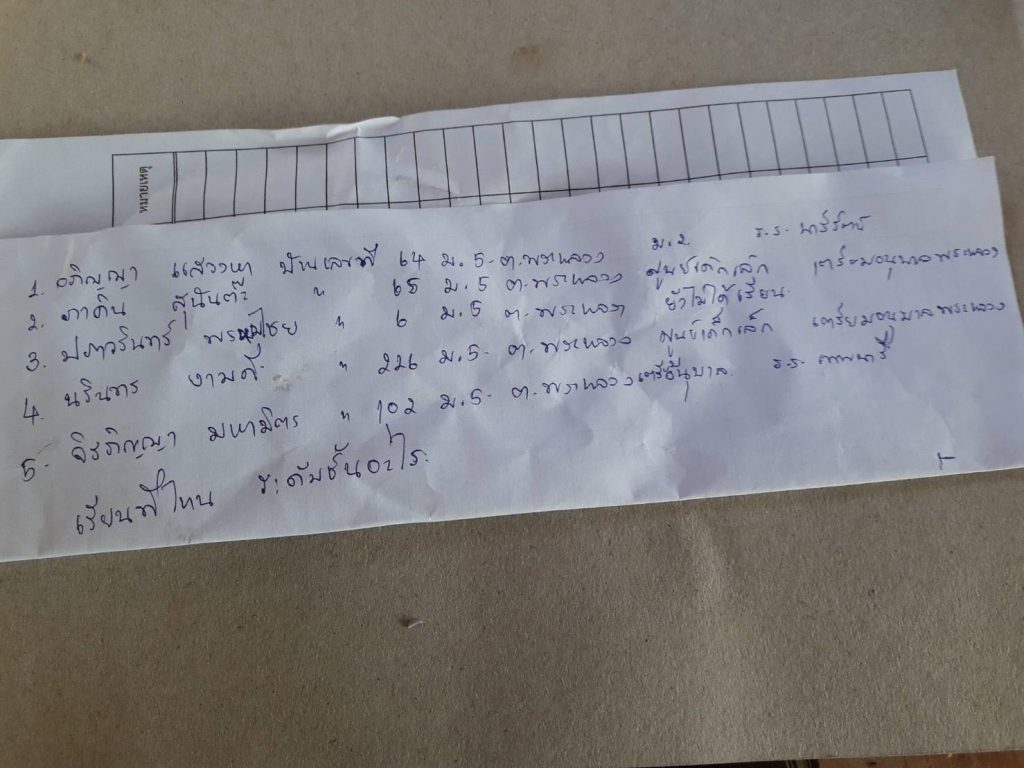 หมายเหตุ
1. อภิญญา แสวงหา บ้านเลขที่ 64 ม.5 ต.พระหลวง ม.2. ร.ร. นารีรัตน์
2. ภาคิน สุนันต๊ะ " 65 ม.5 ต.พระหลวง ศูนย์เด็กเล็ก เตรียมอนุบาลพระหลวง
3. ปภาวรินทร์ พรหมไชย " 6 ม.5 ต.พระหลวง ยังไม่ได้เรียน.
4. นรินทร งามดี " 226 ม.5- ต.พระหลวง ศูนย์เด็กเล็ก เตรียมอนุบาลพระหลวง
5- มหามิตร " 102 ม.5- ต.พระหลวง ร.ร. เทพนารี
เรียนที่ไหน ระดับชั้นอะไร.